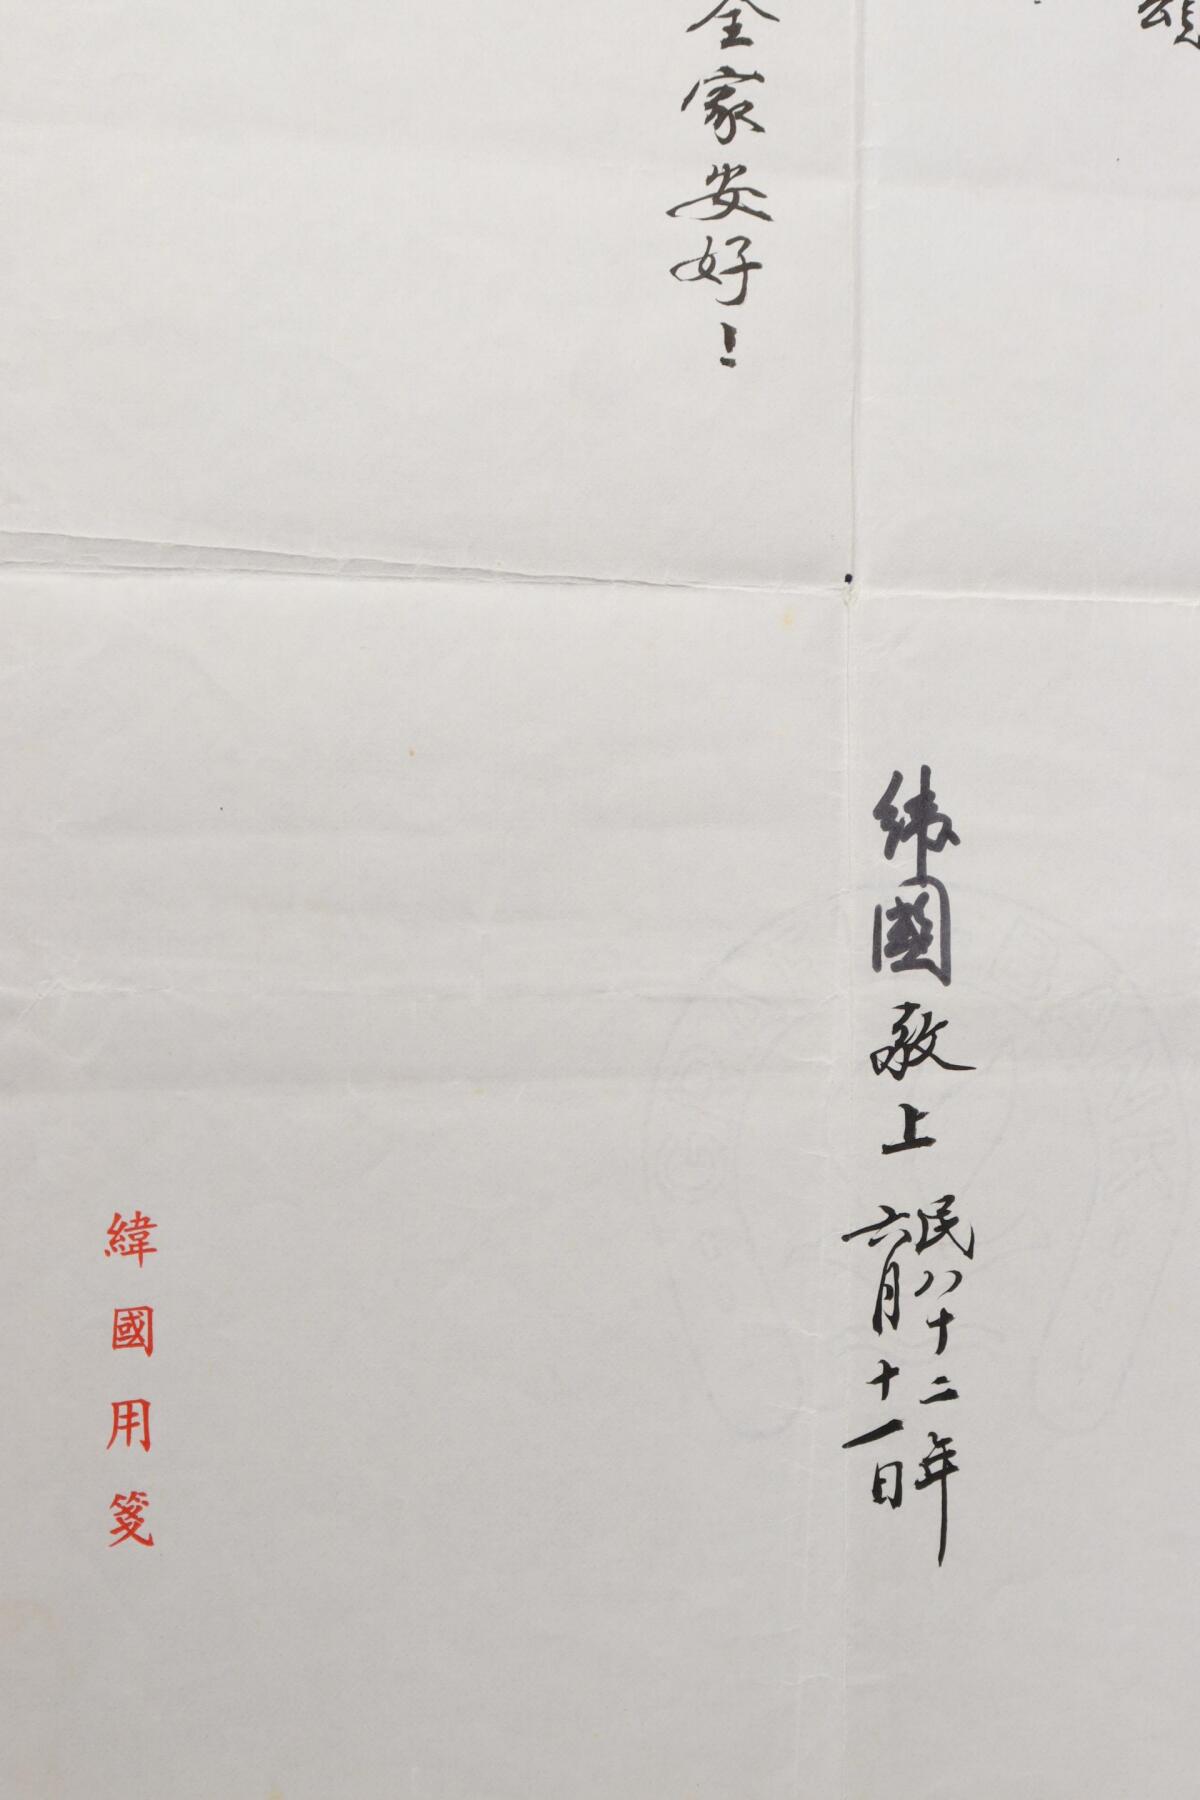 頌
緯國敬上
民八十二年
六月十一日
全家安好！
緯國用箋